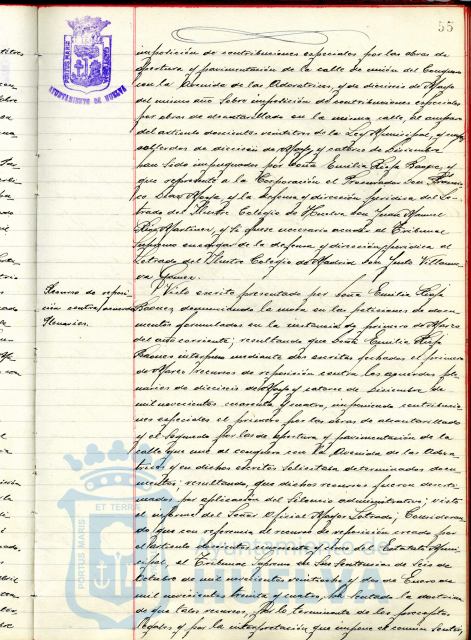 55
PORTUS MARIS
AYUNTAMIENTO DE HUELVA
imposición de contribuciones especiales por las obras de
apertura y pavimentación de la calle de unión del Conquero
con la Avenida de las Adoratrices, y de dieciseis de Mayo
del mismo año sobre imposición de contribuciones especiales
por obras de alcantarillado en la misma calle, al amparo
del artículo doscientos veintitres de la Ley Municipal, y cuyos
acuerdos de dieciseis de Mayo y catorce de Diciembre
han sido impugnados por Doña Emilia
que represente a la Corporación el Procurador Don
Diaz y la defensa y dirección jurídica del Le-
trado del Ilustre Colegio de Huelva Don Juan Manuel
Martinez, y si fuese necesario acudir al Tribunal
Supremo encargar de la defensa y dirección jurídica al
Letrado del Ilustre Colegio de Madrid Don Justo Villanue-
va Gómez.
Recurso de reposi-
ción contra acuerdos
Plenarios.
Visto escrito presentado por Doña Emilia
denunciando la mora en las peticiones de docu-
mentos formuladas en la instancia de primero de Marzo
del año corriente; resultando que Doña Emilia
interpuso mediante dos escritos fechados el primero
de Marzo recursos de reposición contra los acuerdos ple-
narios de dieciseis de Mayo y catorce de Diciembre de
mil novecientos cuarenta y cuatro, imponiendo contribucio-
nes especiales el primero por las obras de alcantarillado
y el segundo por las de apertura y pavimentación de la
calle que une al conquero con la Avenida de las Adora-
trices y en dichos escritos solicitaba determinados docu-
mentos; resultando, que dichos recursos fueron desesti-
mados por aplicación del silencio administrativo; visto
el informe del Señor Oficial Mayor Letrado; Consideran-
do que con referencia al recurso de reposición creado por
el artículo del Estatuto Muni-
cipal, el Tribunal Supremo en sus Sentencias de Seis de
Octubre de mil novecientos veintiocho y dos de Enero de
mil novecientos treinta y cuatro, ha sentado la doctrina
de que tales recursos, por lo terminante de los preceptos
legales y por la interpretación que impone el común sentir,
PORTUS MARIS ET TERRAE
Ayuntamiento de
HUELVA